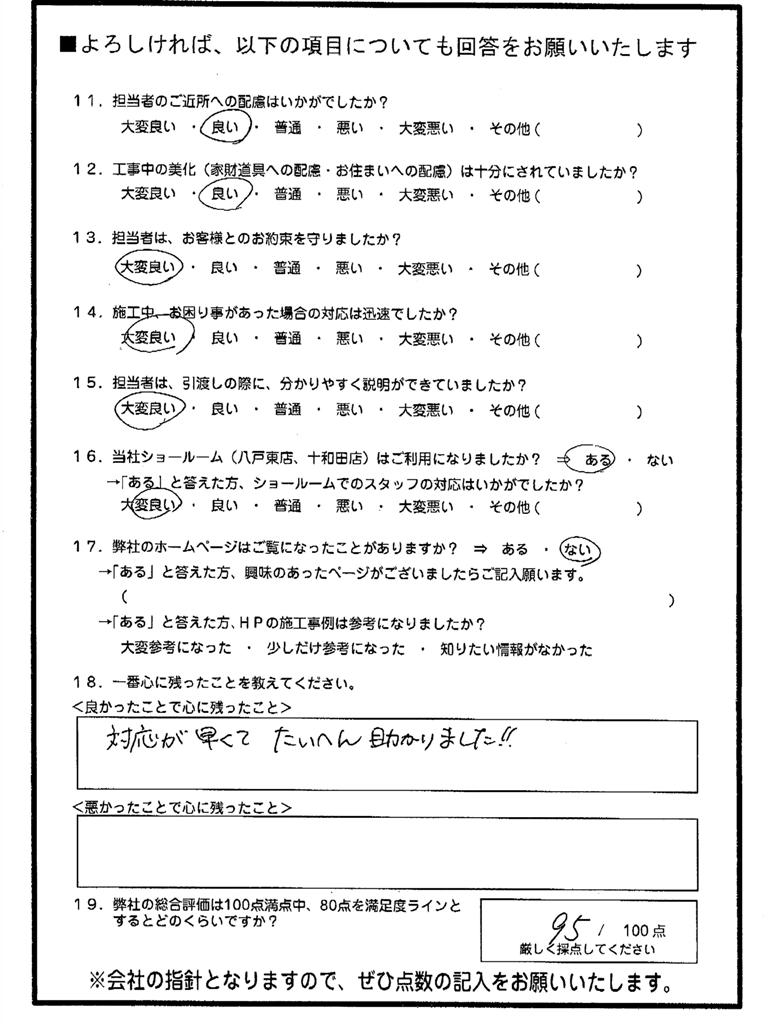 ■よろしければ、以下の項目についても回答をお願いいたします
１１．担当者のご近所への配慮はいかがでしたか？
大変良い ・ 良い ・ 普通 ・ 悪い ・ 大変悪い ・ その他（　　　　　　）
１２．工事中の美化（家財道具への配慮・お住まいへの配慮）は十分にされていましたか？
大変良い ・ 良い ・ 普通 ・ 悪い ・ 大変悪い ・ その他（　　　　　　）
１３．担当者は、お客様とのお約束を守りましたか？
大変良い ・ 良い ・ 普通 ・ 悪い ・ 大変悪い ・ その他（　　　　　　）
１４．施工中、お困り事があった場合の対応は迅速でしたか？
大変良い ・ 良い ・ 普通 ・ 悪い ・ 大変悪い ・ その他（　　　　　　）
１５．担当者は、引渡しの際に、分かりやすく説明ができていましたか？
大変良い ・ 良い ・ 普通 ・ 悪い ・ 大変悪い ・ その他（　　　　　　）
１６．当社ショールーム（八戸東店、十和田店）はご利用になりましたか？ ⇒ ある ・ ない
→「ある」と答えた方、ショールームでのスタッフの対応はいかがでしたか？
大変良い ・ 良い ・ 普通 ・ 悪い ・ 大変悪い ・ その他（　　　　　　）
１７．弊社のホームページはご覧になったことがありますか？ ⇒ ある ・ ない
→「ある」と答えた方、興味のあったページがございましたらご記入願います。
（　　　　　　　　　　　　　　　　　　　　）
→「ある」と答えた方、ＨＰの施工事例は参考になりましたか？
大変参考になった ・ 少しだけ参考になった ・ 知りたい情報がなかった
１８．一番心に残ったことを教えてください。
＜良かったことで心に残ったこと＞
対応が早くて たいへん助かりました!!
＜悪かったことで心に残ったこと＞
１９．弊社の総合評価は100点満点中、80点を満足度ラインと
するとどのくらいですか？
95 / 100点
厳しく採点してください
※会社の指針となりますので、ぜひ点数の記入をお願いいたします。